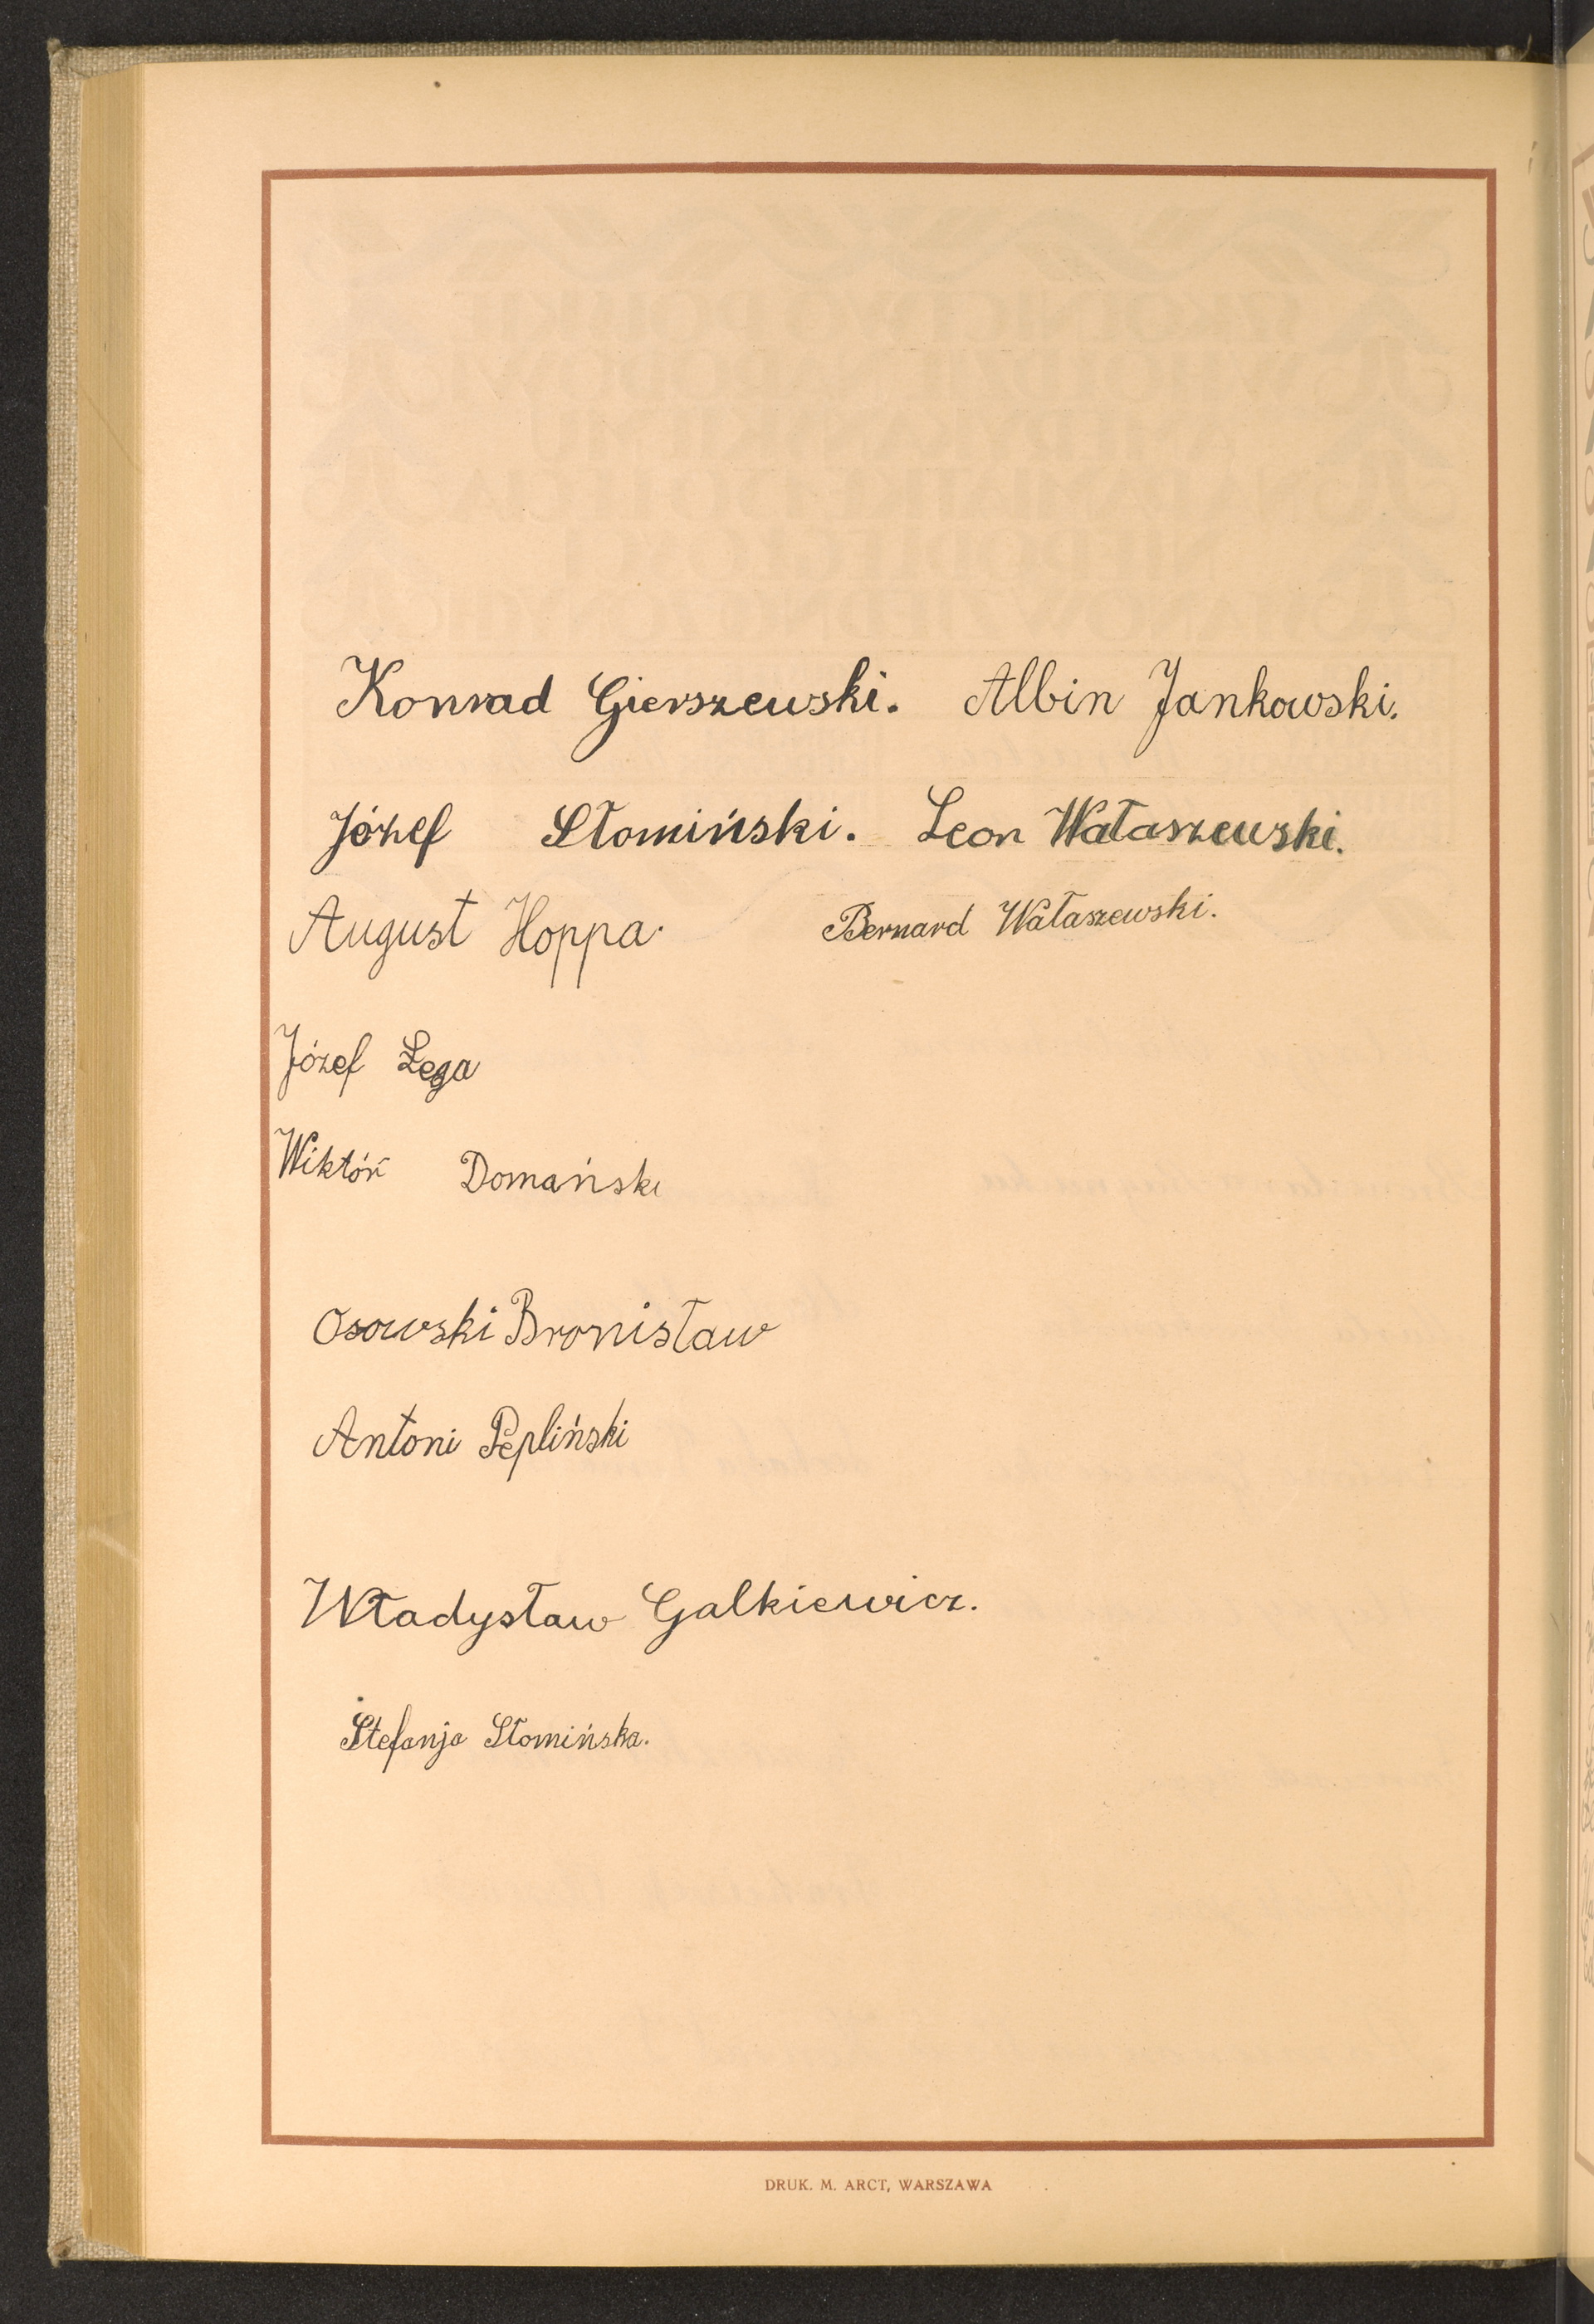 Konrad Gierszewski. Albin Jankowski.
Józef Słomiński. Leon Wałaszewski.
August Hoppa. Bernard Wałaszewski.
Józef Lega
Wiktór Domański
Osowski Bronisław
Antoni Pepliński
Władysław Galkiewicz.
Stefanja Słomińska.
DRUK. M. ARCT, WARSZAWA